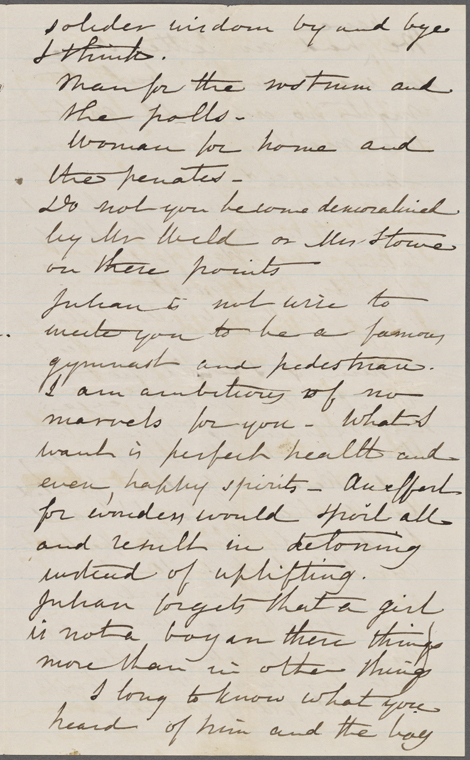 solider wisdom by and bye
I think.
Man for the rostrum and
the polls -
Woman for home and
the penates -
Do not you become demoralized
by Mr Weld or Mrs Stowe
on these points
Julian is not wise to
incite you to be a famous
gymnast and pedestrian.
I am ambitious of no
marvels for you - What I
want is perfect health and
even, happy spirits - An effort
for wonders would spoil all
and result in detoning
instead of uplifting.
Julian forgets that a girl
is not a boy in these things
more than in other things
I long to know what you
heard of him and the boy